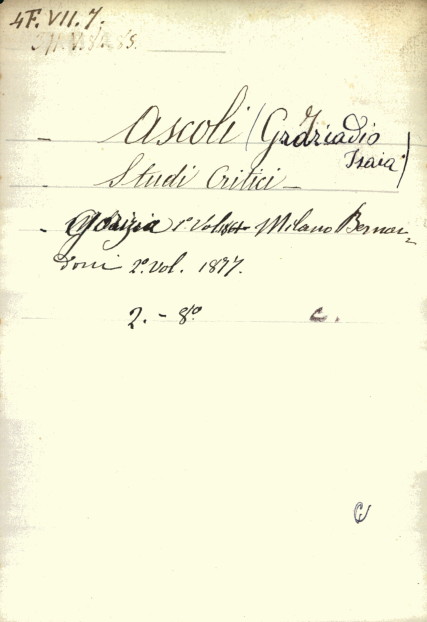 4F. VII. 7.
Ascoli (Graziadio
Isaia)
Studi Critici –
Gorizia 1° Vol. Milano Bernar-
doni 2°. vol. 1877.
2. – 8°
c.